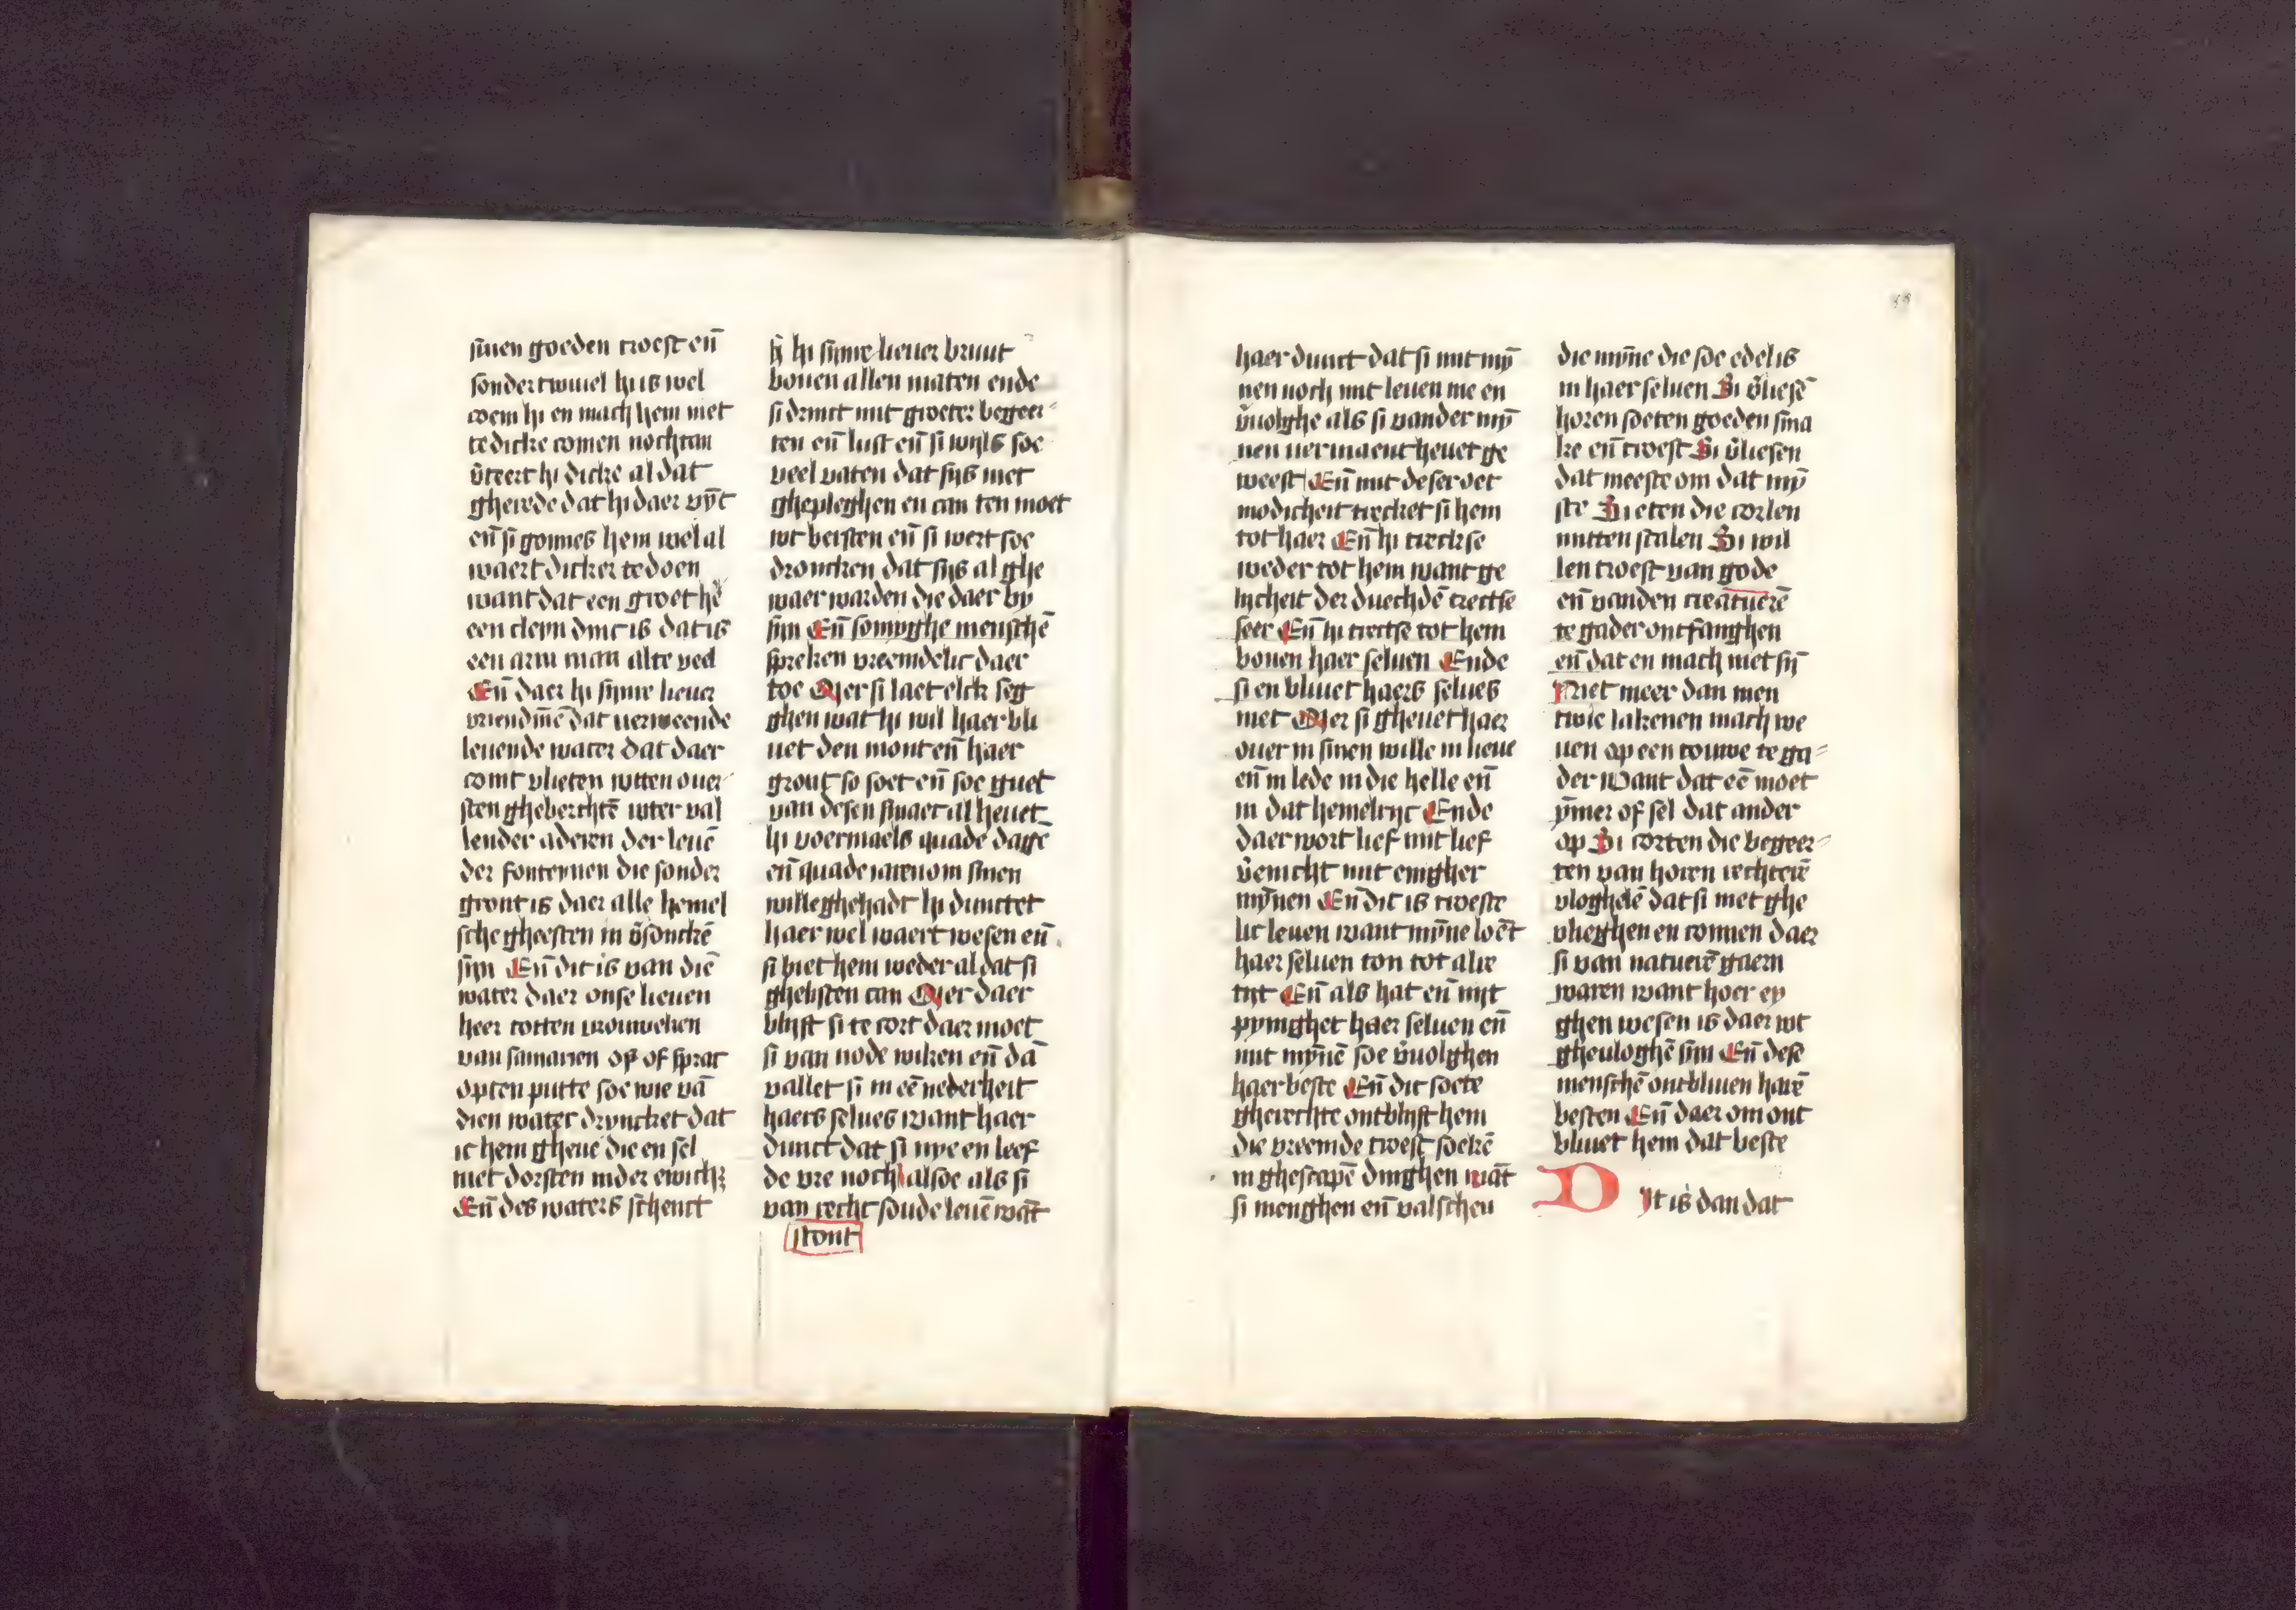 sinen goeden troest en̄
sonder twiuel hi is wel
coem hi en mach hem niet
te dicke comen nochtan
v̄teert hi dicke al dat
gherede dat hi daer vȳt
en̄ si gonnes hem wel al
waert dicker te doen
want dat een groet he
een cleyn dinc is dat is
een arm man alte veel
En̄ daer hi sijnre lieuer
vriendīnē dat verweende
leuende water dat daer
comt vlieten wtten ouer
sten gheberchtē wter val
lender aderen der leuē
der fonteynen die sonder
gront is daer alle hemel
sche gheesten in v̄sonckē
sijn En̄ dit is van diē
water daer onse lieuen
heer totten vrouweken
van samarien op of sprac
opten putte soe wie vā
dien water dryncket dat
ic hem gheue die en sel
niet dorsten inder ewich
En̄ des waters schenct
hi sijnre lieuer bruut
bouen allen maten ende
si drinct mit groeter begeer
ten en̄ lust en̄ si wijls soe
veel vaten dat sijs niet
ghepleghen en can ten moet
wt bersten en̄ si wert soe
droncken dat sijs al ghe
waer warden die daer by
sijn En̄ somyghe menschē
spreken vreemdelic daer
toe Mer si laet elck seg
ghen wat hi wil haer bli
uet den mont en̄ haer
gront so soet en̄ soe guet
van desen smaec al heuet
hi voermaels quade dage
en̄ quade iaren om sinen
wille ghehadt hi dunctet
haer wel waert wesen en̄
si biet hem weder al dat si
ghelesten can Mer daer
blijft si te cort daer moet
si van node wiken en̄ dā
vallet si in eē nederheit
haers selues want haer
dunct dat si nye en leef
de vre noch alsoe als si
van recht soude leuē wāt
stont
haer dunct dat si mit mȳ
nen noch mit leuen nie en
v̄uolghe als si vander mȳ
nen vermaent heuet ge
weest En̄ mit deser oet
modicheit trecket si hem
tot haer En̄ hi treckse
weder tot hem want ge
lycheit der duechdē trectse
seer En̄ hi trectse tot hem
bouen haer seluen Ende
si en bliuet haers selues
niet Mer si gheuet haer
ouer in sinen wille in lieue
en̄ in lede in die helle en̄
in dat hemelryc Ende
daer wort lief mit lief
v̄enicht mit enigher
mȳnen En̄ dit is troeste
lic leuen want mȳne loēt
haer seluen ton tot alre
tyt En̄ als hat en̄ nijt
pynighet haer seluen en̄
mit mȳnē soe v̄uolghen
haer beste En̄ dit soete
gherechte ontblijft hem
die vreemde troest soekē
in ghescapē dinghen wāt
si menghen en̄ valschen
die mȳne die soe edel is
in haer seluen Si v̄liesē
horen soeten goeden sma
ke en̄ troest Si v̄liesen
dat meeste om dat mȳ
ste Si eten die corlen
mitten scalen Si wil
len troest van gode
en̄ vanden creatuerē
te gader ontfanghen
en̄ dat en mach niet sȳ
Niet meer dan men
twie lakenen mach we
uen op een touwe te ga
der Want dat eē moet
ȳmer of sel dat ander
op Si corten die begeer
ten van horen rechterē
vloghelē dat si niet ghe
vlieghen en connen daer
si van natuerē gaern
waren want hoer ey
ghen wesen is daer wt
gheuloghē sijn En̄ dese
menschē ontbliuen harē
besten En̄ daer om ont
bliuet hem dat beste
Dit is dan dat